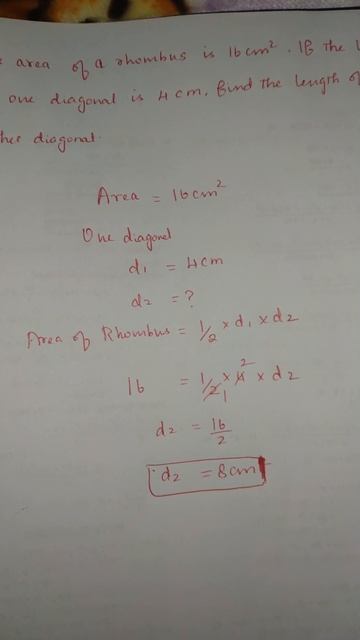 area of a rhombus is 16cm². If the
one diagonal is 4cm, find the length of
diagonal.
Area = 16cm²
One diagonal
d1 = 4cm
d2 = ?
Area of Rhombus = 1/2 × d1 × d2
16 = 1/2 1 × 4 2 × d2
d2 = 16/2
d2 = 8cm